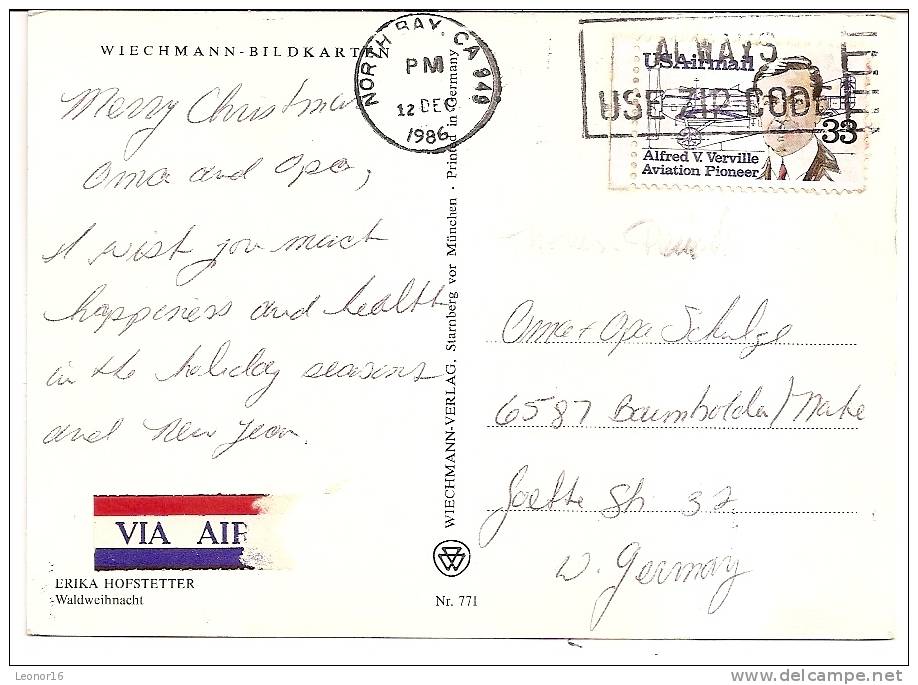 WIECHMANN-BILDKARTEN
Merry Christmas
Oma and Opa,
I wish you much
happiness and health
in the holiday seasons
and New Year.
VIA AIR
ERIKA HOFSTETTER
Waldweihnacht
Nr. 771
WIECHMANN-VERLAG, Starnberg vor München · Printed in Germany
NORTH BAY, CA 949
PM
12 DEC
1986
ALWAYS
USE ZIP CODE
USAirmail
33
Alfred V. Verville
Aviation Pioneer
Oma + Opa Schulze
6587 Baumholder/Nahe
Goethe Str 32
W. Germany
Leonor16
delcampe.net